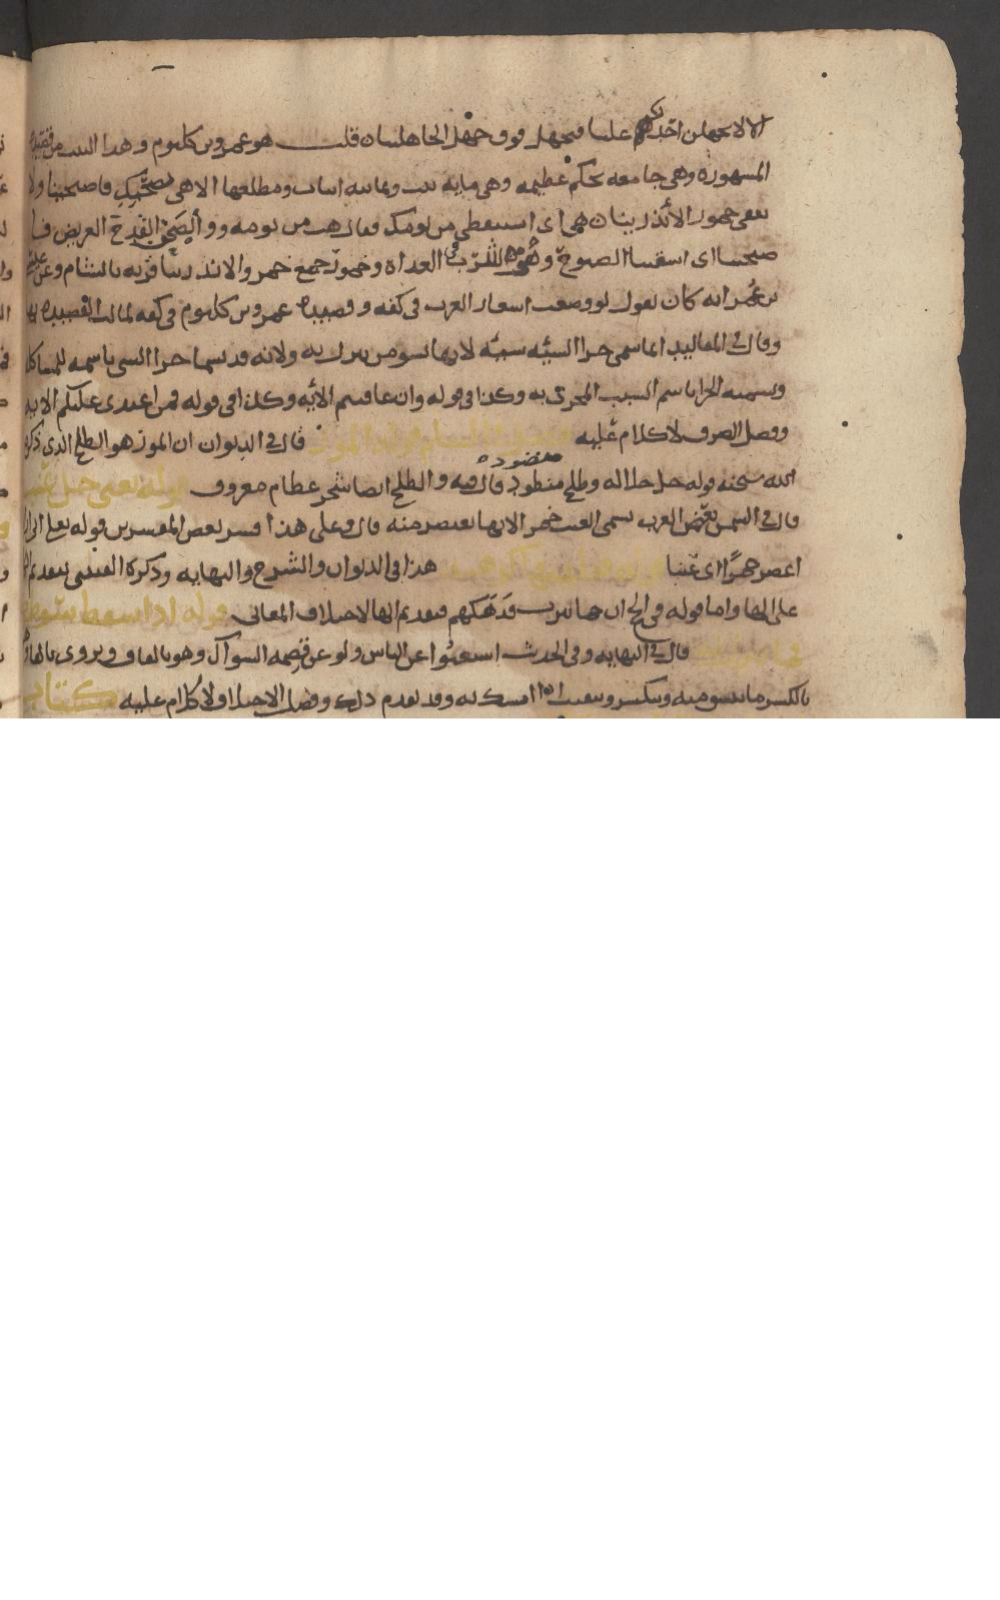 الا لا يجهلن احد علينا فنجهل فوق جهل الجاهلينا قلت هو عمرو بن كلثوم وهذا البيت من قصيدته
المشهورة وهي جامعه لحكم عظيمه وهي مايه بيت وثمانيه ابيات ومطلعها الا هبي بصحنك فاصبحينا ولا
تبقي خمور الأندرينا هبي اى استيقظي من نومك يقال هب من نومه و والصحن القدح العريض فا
صبحينا اى اسقينا الصبوح وهو الشرب في الغداة وخمور جمع خمر والاندرينا قريه بالشام وعن
بن عمر انه كان يقول لو وضعت اشعار العرب في كفه وقصيدة عمرو بن كلثوم في كفه لمالت القصيدة بها
وقال في المقاليد انما سمى جزا السيئه سيئه لانها تسو من ينزل به ولانه قد يسما جزا الشى باسمه للمشاكلة
وتسميه الجزا باسم السبب المجزى به وكذا في قوله وان عاقبتم الآيه وكذا في قوله فمن اعتدى عليكم الايه
وفصل الصرف لا كلام عليه قوله الموز قال في الديوان ان الموز هو الطلح الذى ذكره
الله سبحنه قوله جل جلاله وطلح منضود قال فيه والطلح ايضا شجر عظام معروف قوله تعالى حبل
قال في الشمس بعض العرب يسمى العنب خمر الانها تعتصر منه قال وعلى هذا فسر بعض المفسرين قوله تعلى انى ارانى
اعصر خمرًا اى عنبا هذا في الديوان والشرح والنهايه وذكره العنسى بتقديم
على الها واما قوله في الحج ان جهاتين قدتهكهم فبتقديم الها لاختلاف المعانى قوله اذا
قال في النهايه وفى الحديث استغنوا عن الناس ولو عن قصمه السوآك وهو بالقاف ويروى بالفا و
بالكسر ما تسوس منه وينكسر اذا امسك به وقد تقدم ذلك وفصل الاختلاف لا كلام عليه كتاب